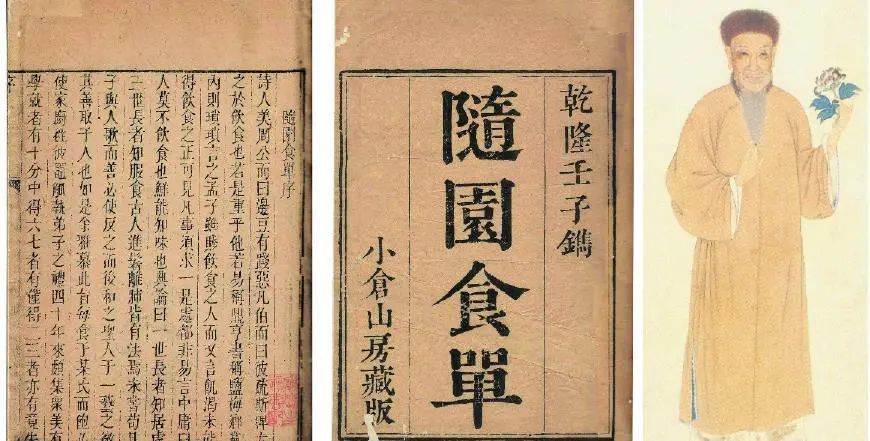 隨園食單序
詩人美周公而曰邊豆有踐惡凡伯而曰彼疏斯稗
之於飲食也若是重乎他若易稱鼎亨書稱鹽梅鄉
內則瑣瑣言之孟子雖賤飲食之人而又言飢渴未能
得飲食之正可見凡事須求一是處都非易言中庸曰
人莫不飲食也鮮能知味也典論曰一世長者知居處
三世長者知服食古人進鬐離肺皆有法焉未嘗苟
子與人歌而善必使反之而後和之聖人于一藝之微
其善取于人也如是余雅慕此旨每食于某氏而飽
使家廚往彼竈觚執弟子之禮四十年來頗集眾美有
學就者有十分中得六七者有僅得二三者亦有竟失
乾隆壬子鐫
隨園食單
小倉山房藏版